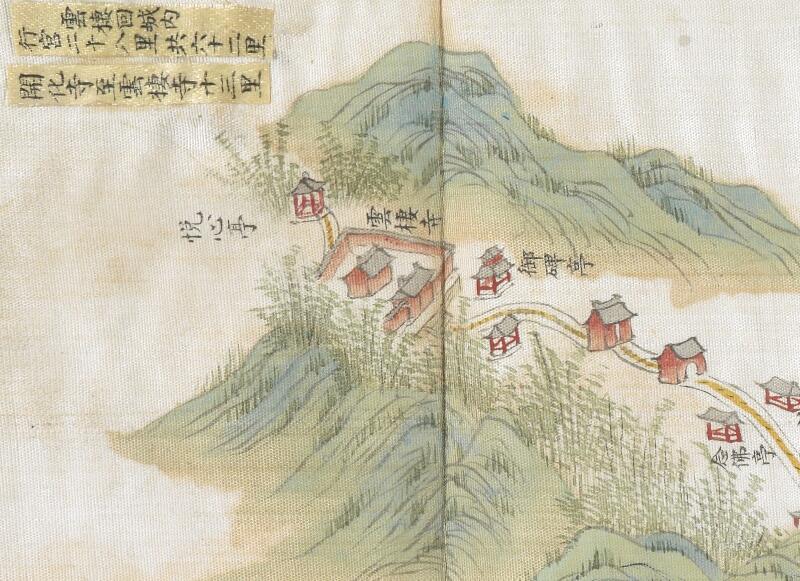 雲棲回城内
行宮二十八里共六十二里
開化寺至雲棲寺十三里
悦心亭
雲棲寺
御碑亭
念佛亭